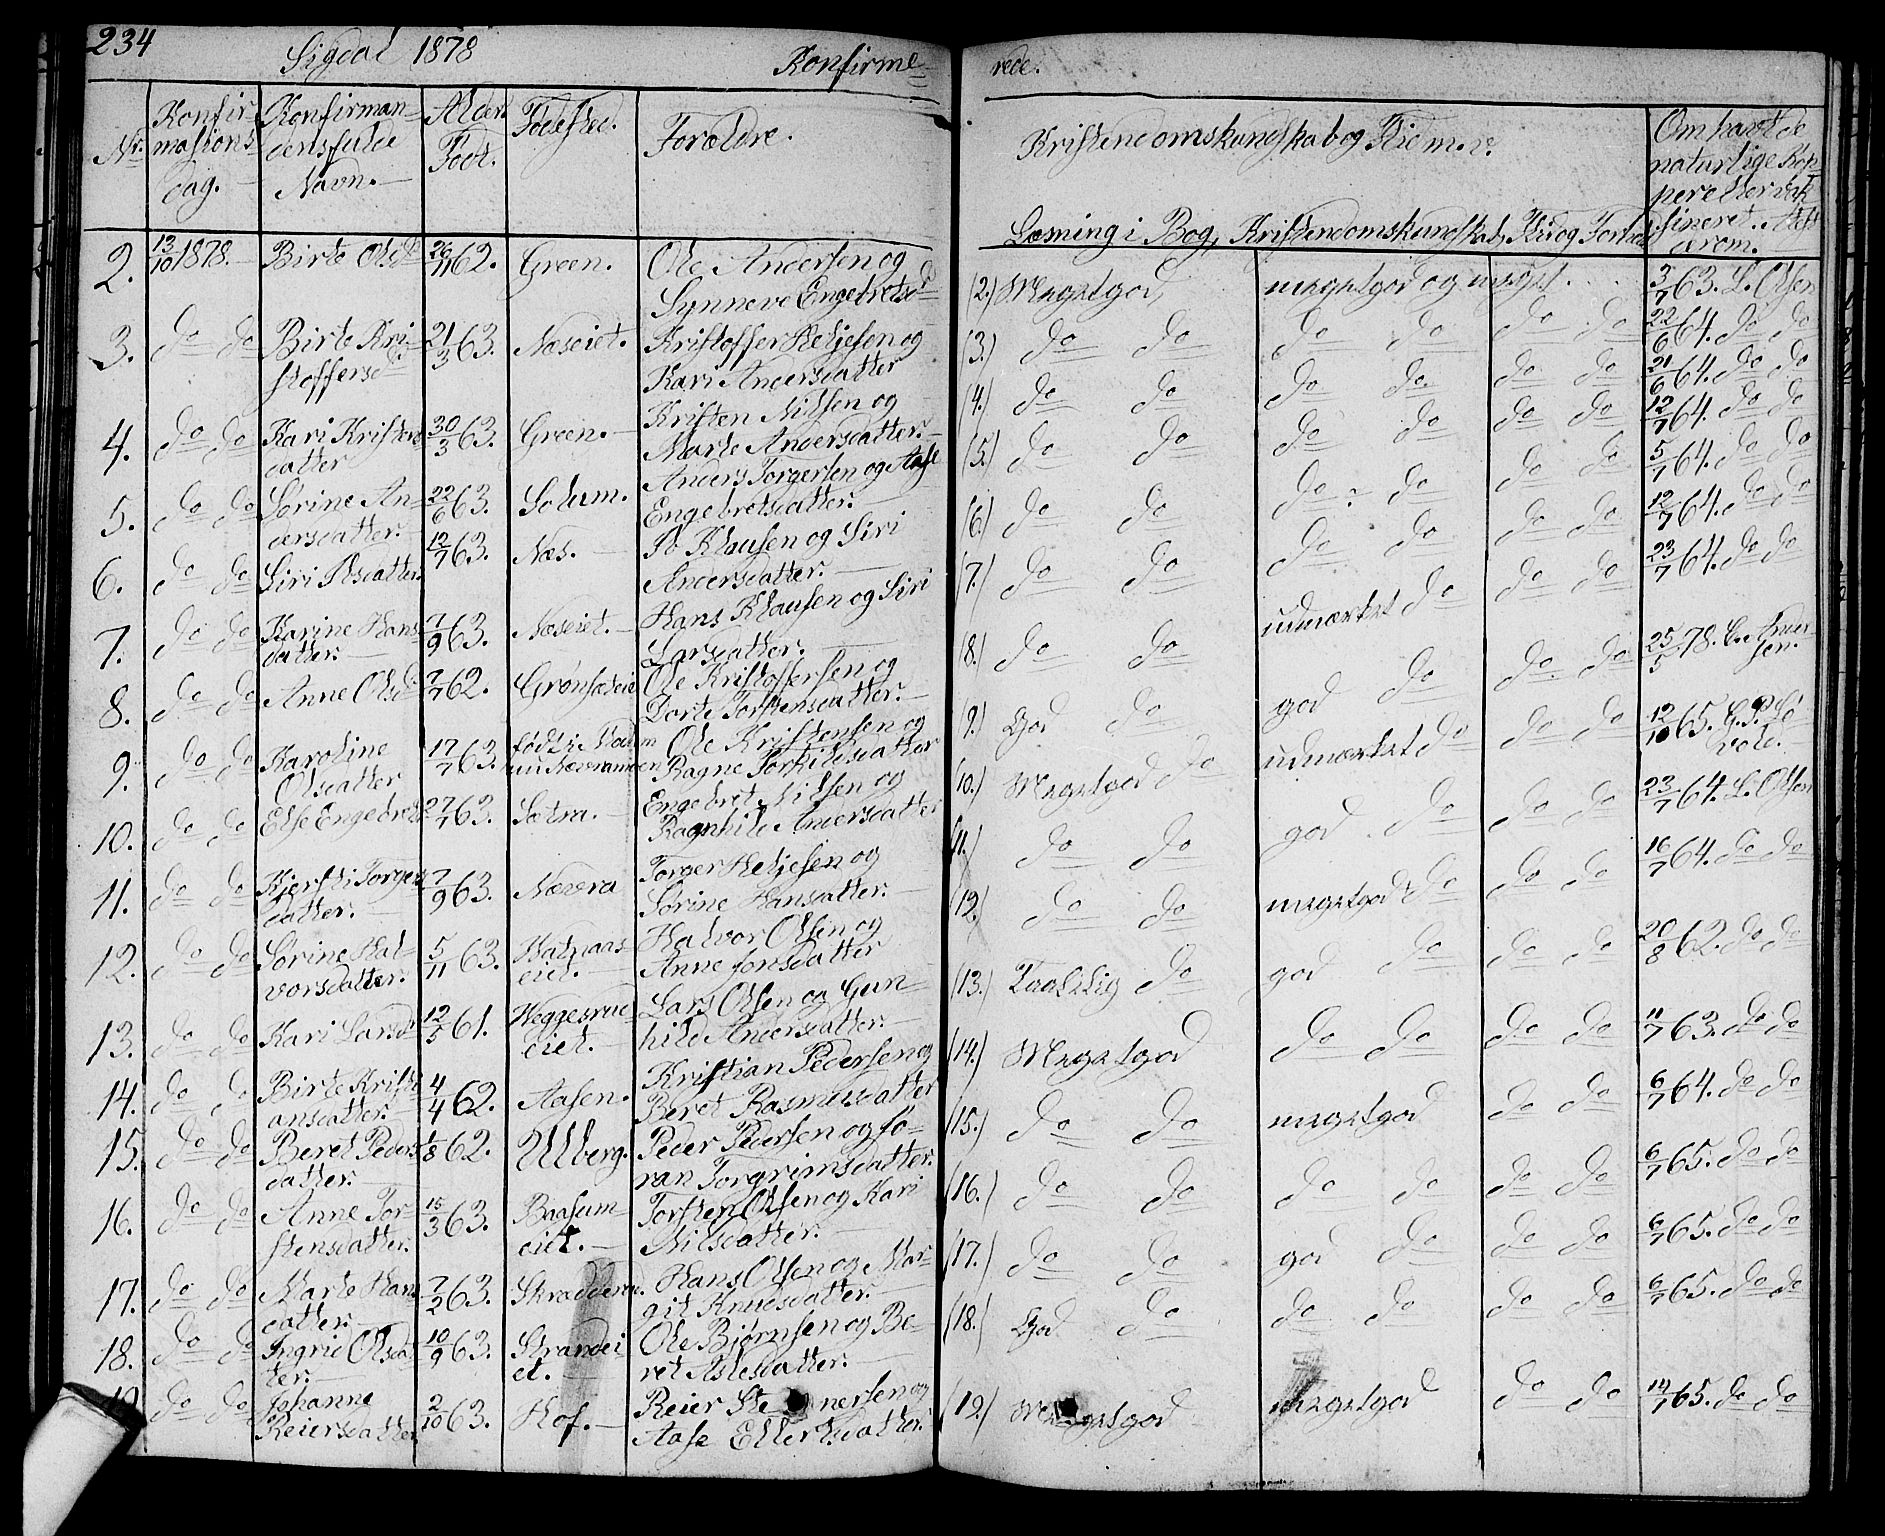 234
Sigdal 1878
Konfirme-
rede.
Nr.
Konfir-
mations
dag.
Konfirman-
densfulde
Navn.
Alder.
Født.
Fødested.
Forældre.
Kristendomskundskab og Flid m. v.
Læsning i Bog, Kristendomskundskab, Flid og Forhold
Om havt de
naturlige Kop
per eller vak
sineret. Attest
ærom.
2. 13/10 1878. Birte Olsd. 26/11 62. Green. Ole Andersen og
Synneve Engebretsd.
3. do do Birte Kri- 21/3 63. Næseiet. Kristoffer Heljesen og
stoffersd. Kari Andersdatter
4. do do Kari Kristens 30/3 63. Green. Kristen Nilsen og
datter Marte Andersdatter.
5. do do Sørine An- 22/6 63. Solum. Anders Torgersen og Aase
dersdatter. Engebretsdatter.
6. do do Siri Psdatter. 12/7 63. Næs. P. Klausen og Siri
Andersdatter.
7. do do Karine Hans 7/9 63. Næseiet. Hans Klausen og Siri
datter. Larsdatter.
8. do do Anne Olsd. 7/7 62. Ole Kristoffersen og
Dorte Torstensdatter.
9. do do Karoline 17/7 63. født i Modum Ole Kristensen og
Olsdatter nu Nævramoen Ragne Torkildsdatter
10. do do Else Engebrets 27/7 63. Sætra. Engebret Nilsen og
Ragnhild Andersdatter
11. do do Kjersti Torgers 7/9 63. Nævra Torger Heljesen og
datter. Sørine Hansdatter.
12. do do Sørine Hal- 5/11 63. Halvor Olsen og
vorsdatter. eiet. Anne Jonsdatter
13. do do Kari Larsd. 12/5 61. Heggesrud Lars Olsen og Gun-
eiet. hild Andersdatter.
14. do do Birte Kristi 4/4 62. Aasen. Kristian Pedersen og
ansdatter. Beret Rasmusdatter
15. do do Beret Peders 1/8 62. Ulberg. Peder Pedersen og Jø-
datter. ran Torgrimsdatter.
16. do do Anne Tor- 15/3 63. Baasum Torsten Olsen og Kari
stensdatter. eiet. Nilsdatter.
17. do do Marte Hans 7/2 63. Skradderud. Hans Olsen og Mar-
datter. git Knudsdatter.
18. do do Ingrid Olsdat 10/9 63. Strandei Ole Bjørnsen og Be-
ter. et. ret Aslesdatter.
do do Johanne 2/10 63. Hof. Reier Ste nersen og
Reiersdatter Aase Ellertsdatter.
(2.) Megetgod, megetgod og meget. 3/7 63. L. Olsen
(3.) do do do do do do 22/6 64. do do
(4.) do do do do do do 21/6 64. do do
(5.) do do do do do do 12/7 64. do do
(6.) do do do do do do 5/7 64. do do
(7.) do do do do do do 12/7 64. do do
(8.) do do udmærket do do do 23/7 64. do do
(9.) God do god do do do 25/5 78.
(10.) Megetgod do udmærket do do do 12/10 65.
(11.) do do god do do do 23/7 64. L. Olsen
(12.) do do megetgod do do do 16/7 64. do do
(13.) Taalelig do god do do do 20/8 62. do do
(14.) Megetgod do do do do 11/7 63. do do
(15.) do do megetgod do do 6/7 64. do do
(16.) do do do do do do 6/7 65. do do
(17.) do do god do do do 6/7 65. do do
(18.) God do do do do do 6/7 65. do do
(19.) Megetgod megetgod do do 14/7 65. do do